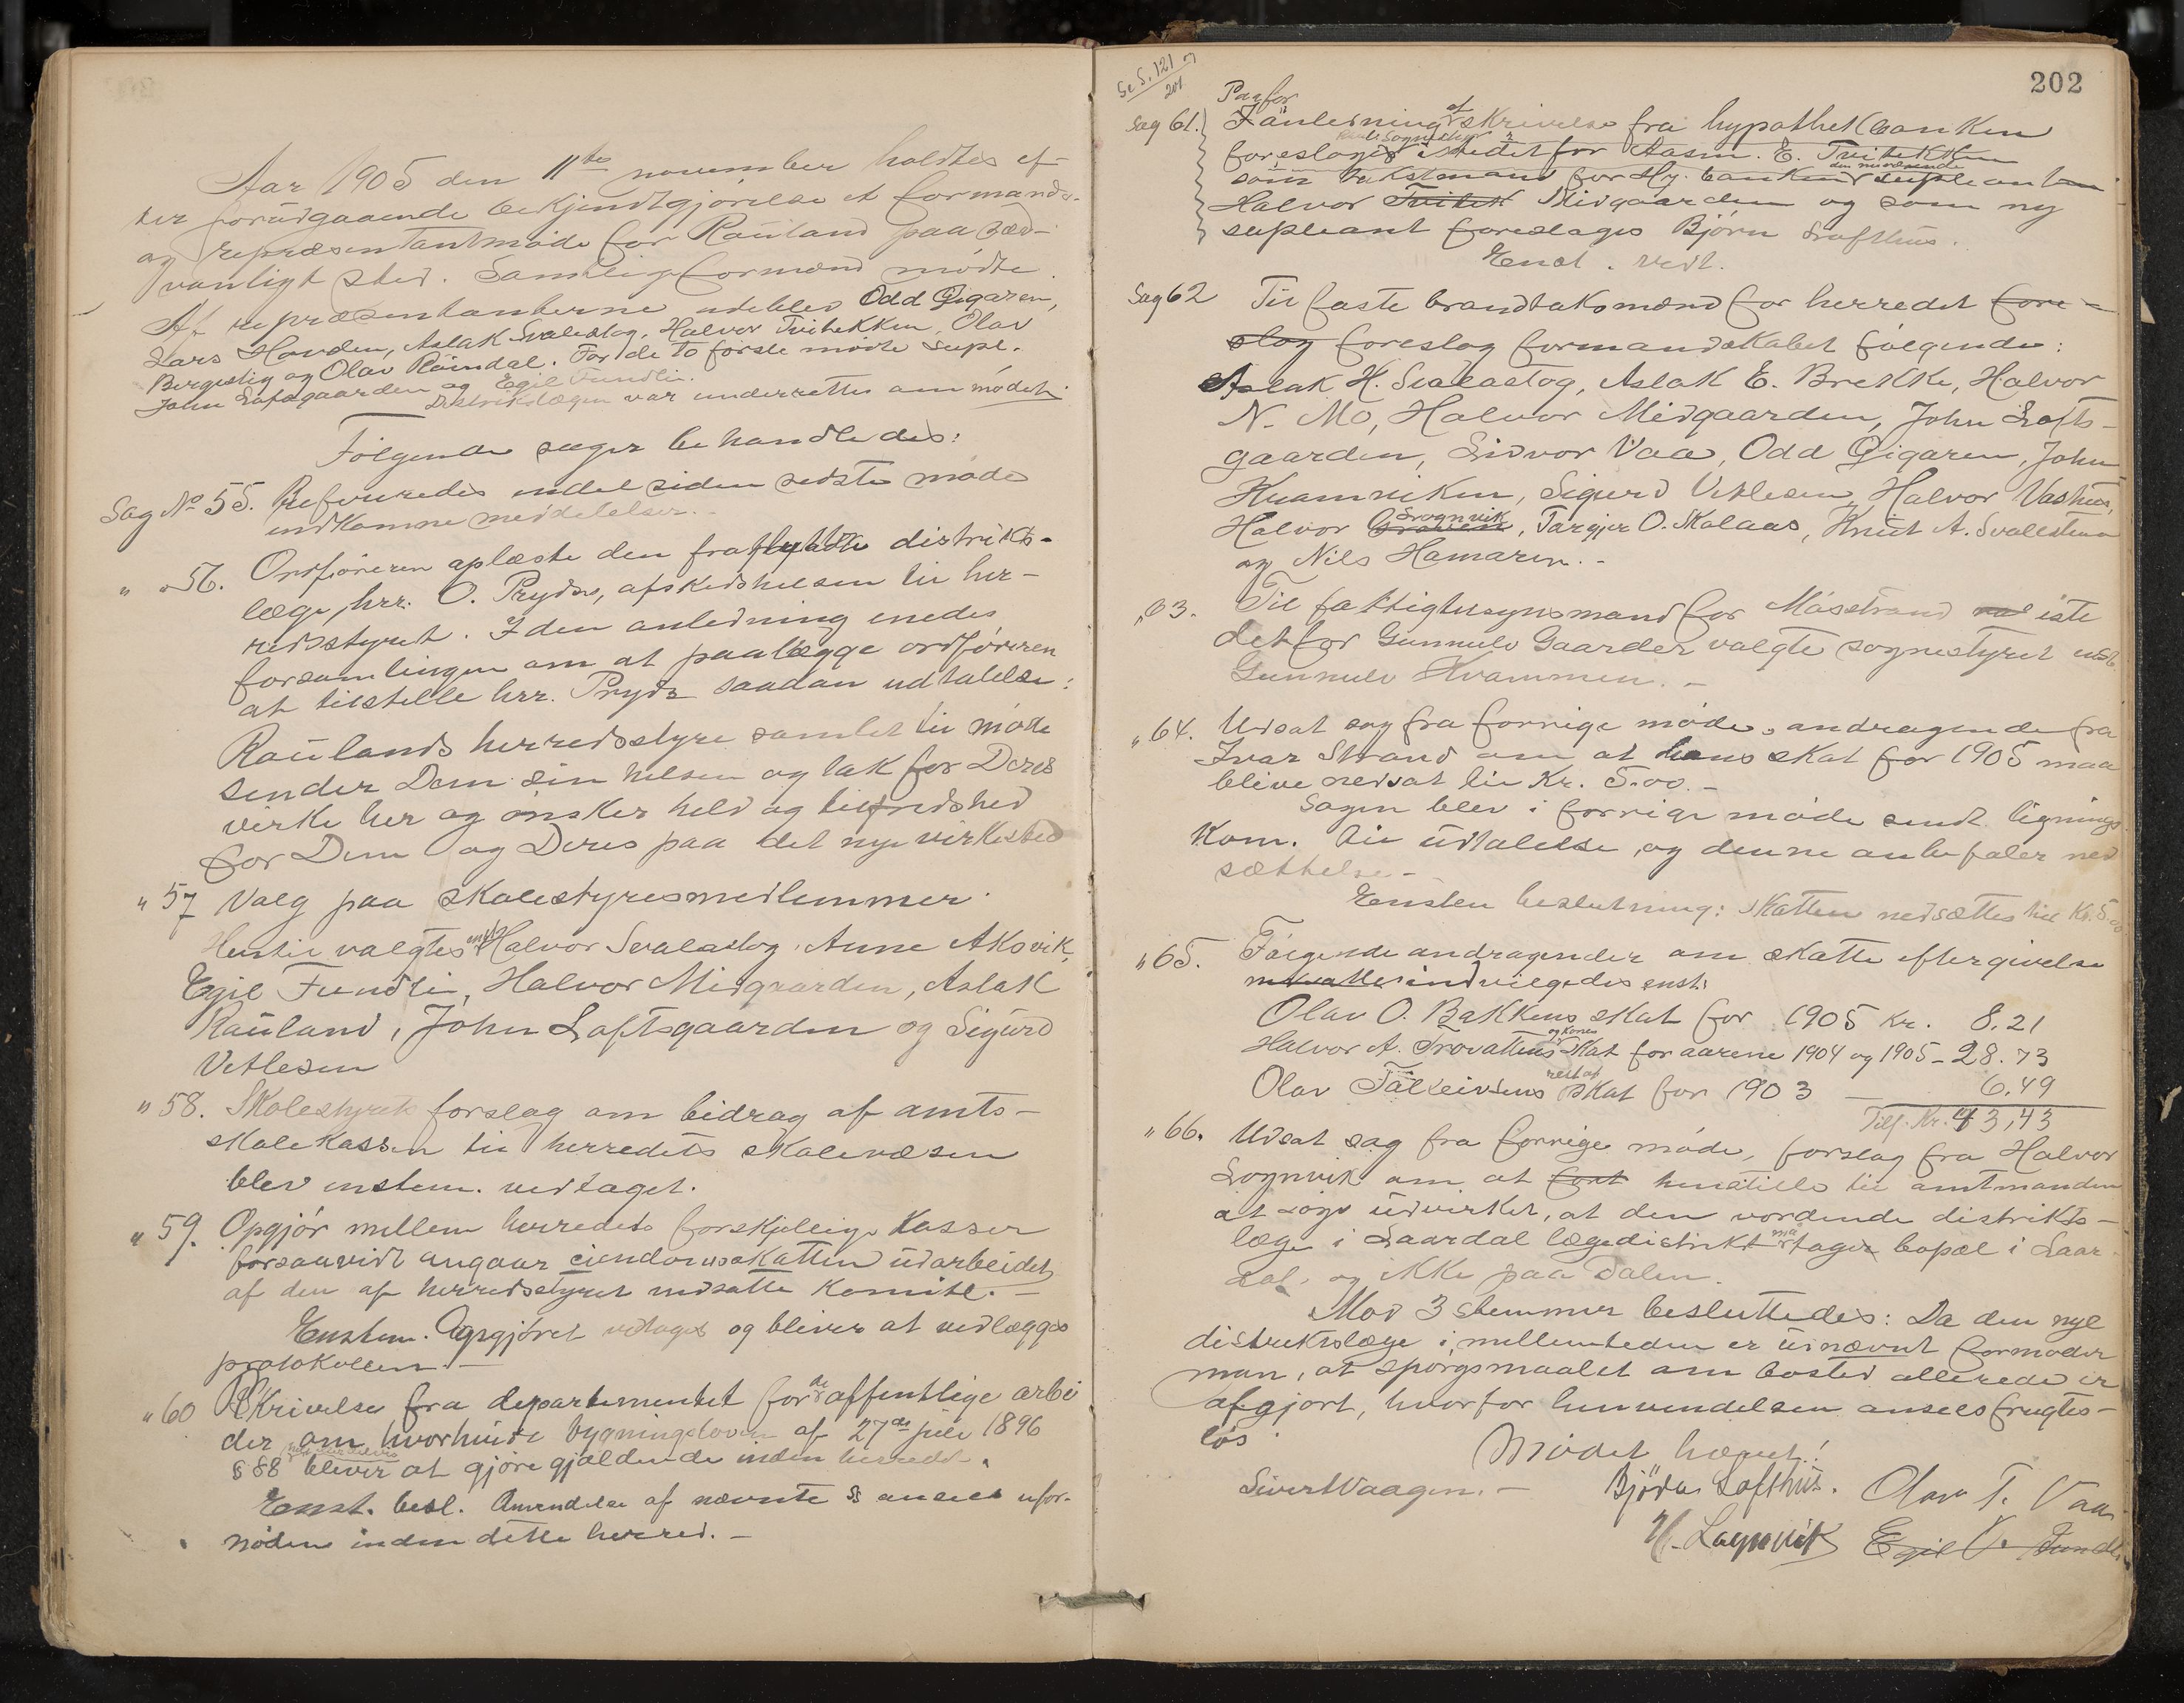 Aar 1905 den 11te november holdtes ef-
ter forudgaaende bekjendtgjørelse et formands-
og repræsentantmøde for Rauland paa sæd-
vanligt sted. Samtlige formænd mødte.
Af repræsentanterne udeblev Odd Gigaren,
Lars Hovden, Aslak Svalastog, Halvor Tvitekken, Olav
Bergestig og Olav Røindal. For de to første mødte supl.
John Loftsgaarden og Egil Fundlin.
Distriktslægen var underrettet om mødet.
Følgende sager behandledes:
Sag No 55. Refereredes endel siden sidste møde
indkomne meddelelser. -
" " 56. Ordføreren oplæste den fraflyttede distrikts-
læge, hrr. O. Prydz, afskedshilsen til her-
redsstyret. I den anledning enedes
forsamlingen om at paalægge ordføreren
at tilstille hrr. Prydz saadan udtalelse:
Raulands herredsstyre samlet til møde
sender Dem sin hilsen og tak for Deres
virke her og ønsker held og tilfredshed
for Dem og Deres paa det nye virkested
" 57 Valg paa skolestyresmedlemmer.
Hertil valgtes enst. Halvor Svalastog, Anne Aksvik,
Egil Fundli, Halvor Midgaarden, Aslak
Rauland, John Loftsgaarden og Sigurd
Vetlesen
" 58. Skolestyrets forslag om bidrag af amts-
skolekassen til herredets skolevæsen
blev enstem. vedtaget.
" 59. Opgjør mellem herredets forskjellige kasser
forsaavidt angaar eiendomsskatten udarbeidet
af den af herredsstyret nedsatte komite. -
Enstem. Opgjøret vedtages og bliver at vedlægges
protokollen. -
" 60 Skrivelse fra departementet for de offentlige arbei
der om hvorhvidt bygningsloven af 27de juli 1896
§ 88 bliver at gjøre gjældende inden herredet.
Enst. besl. Anvendelse af nævnte § ansees ufor-
nøden inden dette herred. -
202
Se S. 121 og
201
Paafor
Sag 61. I anledning af skrivelse fra hypothekbanken
foreslages istedetfor Aasm. E. Tvitekken
som takstmand for Hy. banken den nuværende supleanten
Halvor Tvitek Midgaarden og som ny
supleant foreslages Bjørn Lofthus.
Enst. vedt.
Sag 62 Til faste brandtaksmænd for herredet fore-
slog foreslog formandskabet følgende:
Aslak H. Svalastog, Aslak E. Brekke, Halvor
N. Mo, Halvor Midgaarden, John Lofts-
gaarden, Sidvor Vaa, Odd Gigaren, John
Kvamviken, Sigurd Vetlesen, Halvor Vashus,
Halvor Lognvik, Targjer O. Skalaas, Knut A. Svalestuen
og Nils Hamaren. -
" 63. Til fattigtilsynsmand for Møsstrand val iste
detfor Gunnulv Gaarder valgte sognestyret enst.
Gunnulv Kvammen. -
" 64. Udsat sag fra forrige møde, andragende fra
Ivar Strand om at hans skat for 1905 maa
blive nedsat til Kr. 5.00. -
Sagen blev i forrige møde sendt lignings
kom. til udtalelse, og denne anbefaler ned
sættelse -
Enstem beslutning: Skatten nedsættes til Kr. 5.00
" 65. Følgende andragender om skatte eftergivelse
indvilgedes enst.
Olav O. Bakkens skat for 1905 Kr. 8,21
Halvor A. Trovattens og kones skat for aarene 1904 og 1905 - 28.73
Olav Talleivsens rest af skat for 1903 — 6.49
Tils. Kr. 43,43
" 66. Udsat sag fra forrige møde, forslag fra Halvor
Lognvik om at henstille til amtmanden
at søge udvirket, at den vordende distrikts-
læge i Laardal lægedistrikt maa tage bopæl i Laar-
dal, og ikke paa Dalen.
Mod 3 stemmer besluttedes: Da den nye
distriktslæge i mellemtiden er udnævnt formoder
man, at spørgsmaalet om bosted allerede er
afgjort, hvorfor henvendelsen ansees frugtes-
løs.
Mødet hævet!
Sivert Vaagen. - Bjørn Lofthus. Olav T. Vaa
H. Lognvik Egil V. Fundli